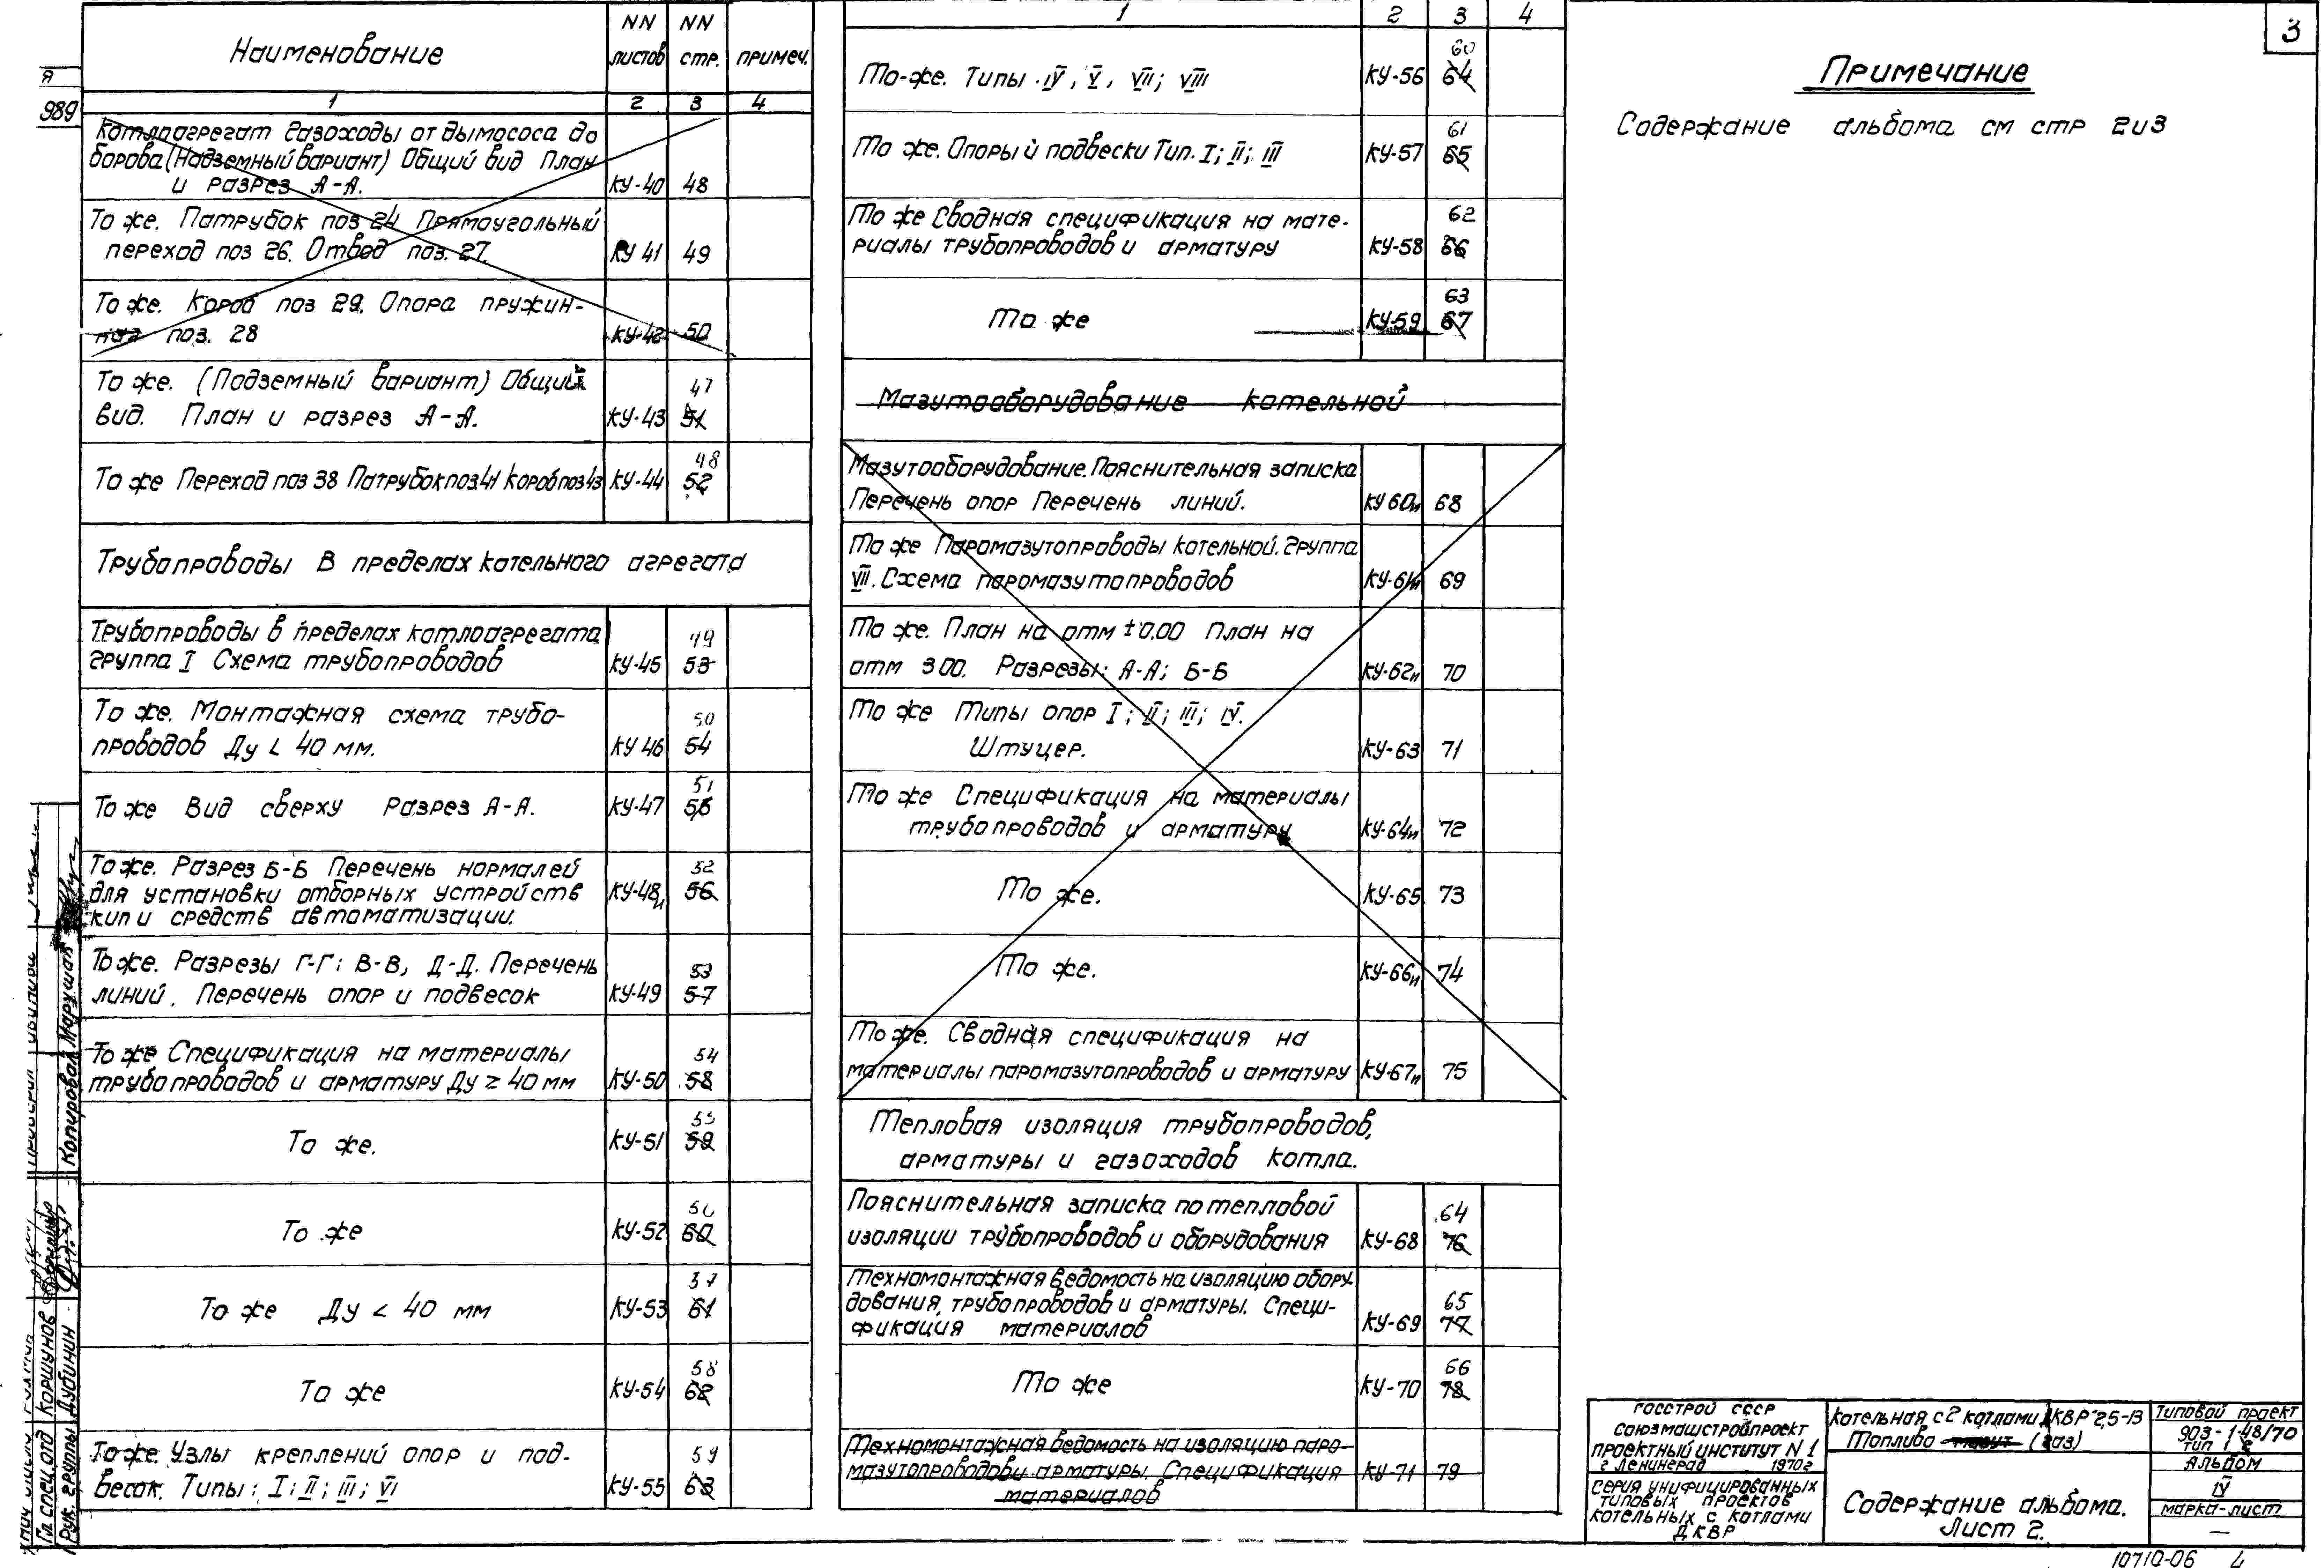 Наименование
NN листов
NN стр.
примеч.
1 2 3 4
Котлоагрегат Газоходы от дымососа до
борова (Надземный вариант) Общий вид План
и разрез А-А. КУ-40 48
То же. Патрубок поз 24 Прямоугольный
переход поз 26. Отвод поз. 27. КУ 41 49
То же. Короб поз 29. Опора пружин-
ная поз. 28 КУ-42 50
То же. (Подземный вариант) Общий
вид. План и разрез А-А. КУ-43 47 51
То же Переход поз 38 Патрубок поз.41 Короб поз 43 КУ-44 48 52
Трубопроводы в пределах котельного агрегата
Трубопроводы в пределах котлоагрегата
группа I Схема трубопроводов КУ-45 49 53
То же. Монтажная схема трубо-
проводов Ду < 40 мм. КУ 46 50 54
То же Вид сверху Разрез А-А. КУ-47 51 55
То же. Разрез Б-Б Перечень нормалей
для установки отборных устройств
кип и средств автоматизации. КУ-48и 52 56
То же. Разрезы Г-Г; В-В, Д-Д. Перечень
линий. Перечень опор и подвесок КУ-49 53 57
То же Спецификация на материалы
трубопроводов и арматуру Ду ≥ 40 мм КУ-50 54 58
То же. КУ-51 55 59
То же КУ-52 56 60
То же Ду < 40 мм КУ-53 57 61
То же КУ-54 58 62
То же. Узлы креплений опор и под-
весок. Типы: I; II; III; VI КУ-55 59 63
1 2 3 4
То-же. Типы IV, V, VII; VIII КУ-56 60 64
То же. Опоры и подвески Тип. I; II; III КУ-57 61 65
То же Сводная спецификация на мате-
риалы трубопроводов и арматуру КУ-58 62 66
То же КУ-59 63 67
Мазутооборудование котельной
Мазутооборудование. Пояснительная записка
Перечень опор Перечень линий. КУ 60и 68
То же Паромазутопроводы котельной. Группа
VII. Схема паромазутопроводов КУ-61и 69
То же. План на отм ±0.00 План на
отм 3.00. Разрезы: А-А; Б-Б КУ-62и 70
То же Типы опор I; II; III; IV.
Штуцер. КУ-63 71
То же Спецификация на материалы
трубопроводов и арматуру КУ-64и 72
То же. КУ-65 73
То же. КУ-66и 74
То же. Сводная спецификация на
материалы паромазутопроводов и арматуру КУ-67и 75
Тепловая изоляция трубопроводов,
арматуры и газоходов котла.
Пояснительная записка по тепловой
изоляции трубопроводов и оборудования КУ-68 64 76
Техномонтажная ведомость на изоляцию обору-
дования, трубопроводов и арматуры. Специ-
фикация материалов КУ-69 65 77
То же КУ-70 66 78
Техномонтажная ведомость на изоляцию паро-
мазутопроводов и арматуры. Спецификация КУ-71 79
материалов
3
Примечание
Содержание альбома см стр 2 и 3
Госстрой СССР
Союзмашстройпроект
проектный институт N 1
г Ленинград 1970г
Серия унифицированных
типовых проектов
котельных с котлами
ДКВР
Котельная с 2 котлами ДКВР 2,5-13
Топливо мазут (газ)
Содержание альбома.
Лист 2.
Типовой проект
903-1-48/70
тип I г
Альбом
IV
марка-лист
—
10710-06 4
я
989
Гл спец. отд Коршунов
Рук. группы Дубинин
Проверил
Копировал